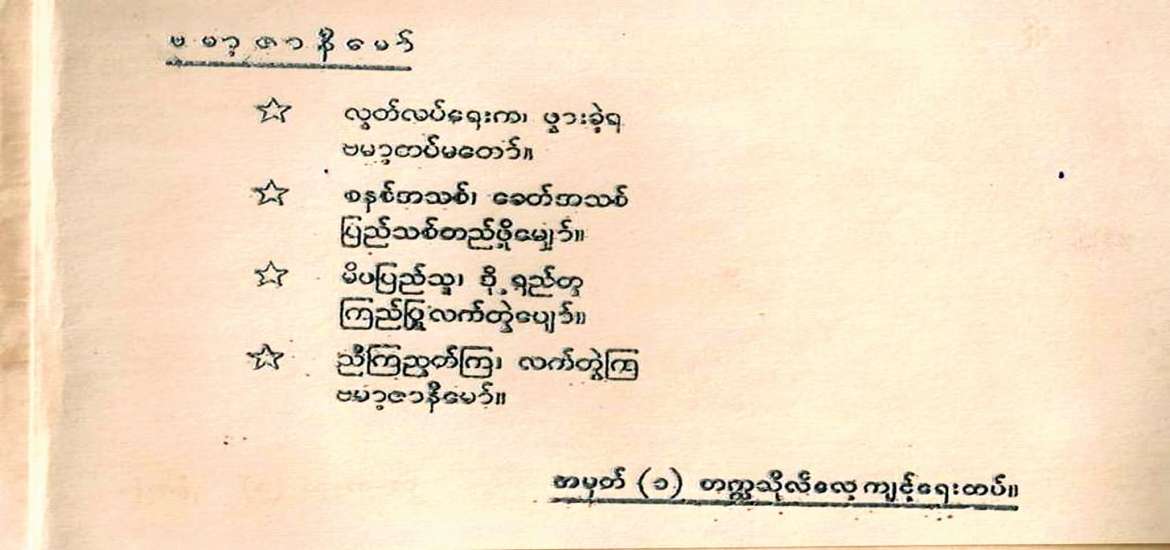 ဗမာ့ဇာနီမော်
☆ လွတ်လပ်ရေးက၊ ဖွားခဲ့ရ
ဗမာ့တပ်မတော်။
☆ စနစ်အသစ်၊ ခေတ်အသစ်
ပြည်သစ်တည်ဖို့မျှော်။
☆ မိပပြည်သူ၊ ဝိုင်းရံတူ
ကြည်ဖြူလက်တွဲပျော်။
☆ ညီကြညွတ်ကြ၊ လက်တွဲကြ
ဗမာ့ဇာနီမော်။
အမှတ် (၁) တက္ကသိုလ်လေ့ကျင့်ရေးတပ်။